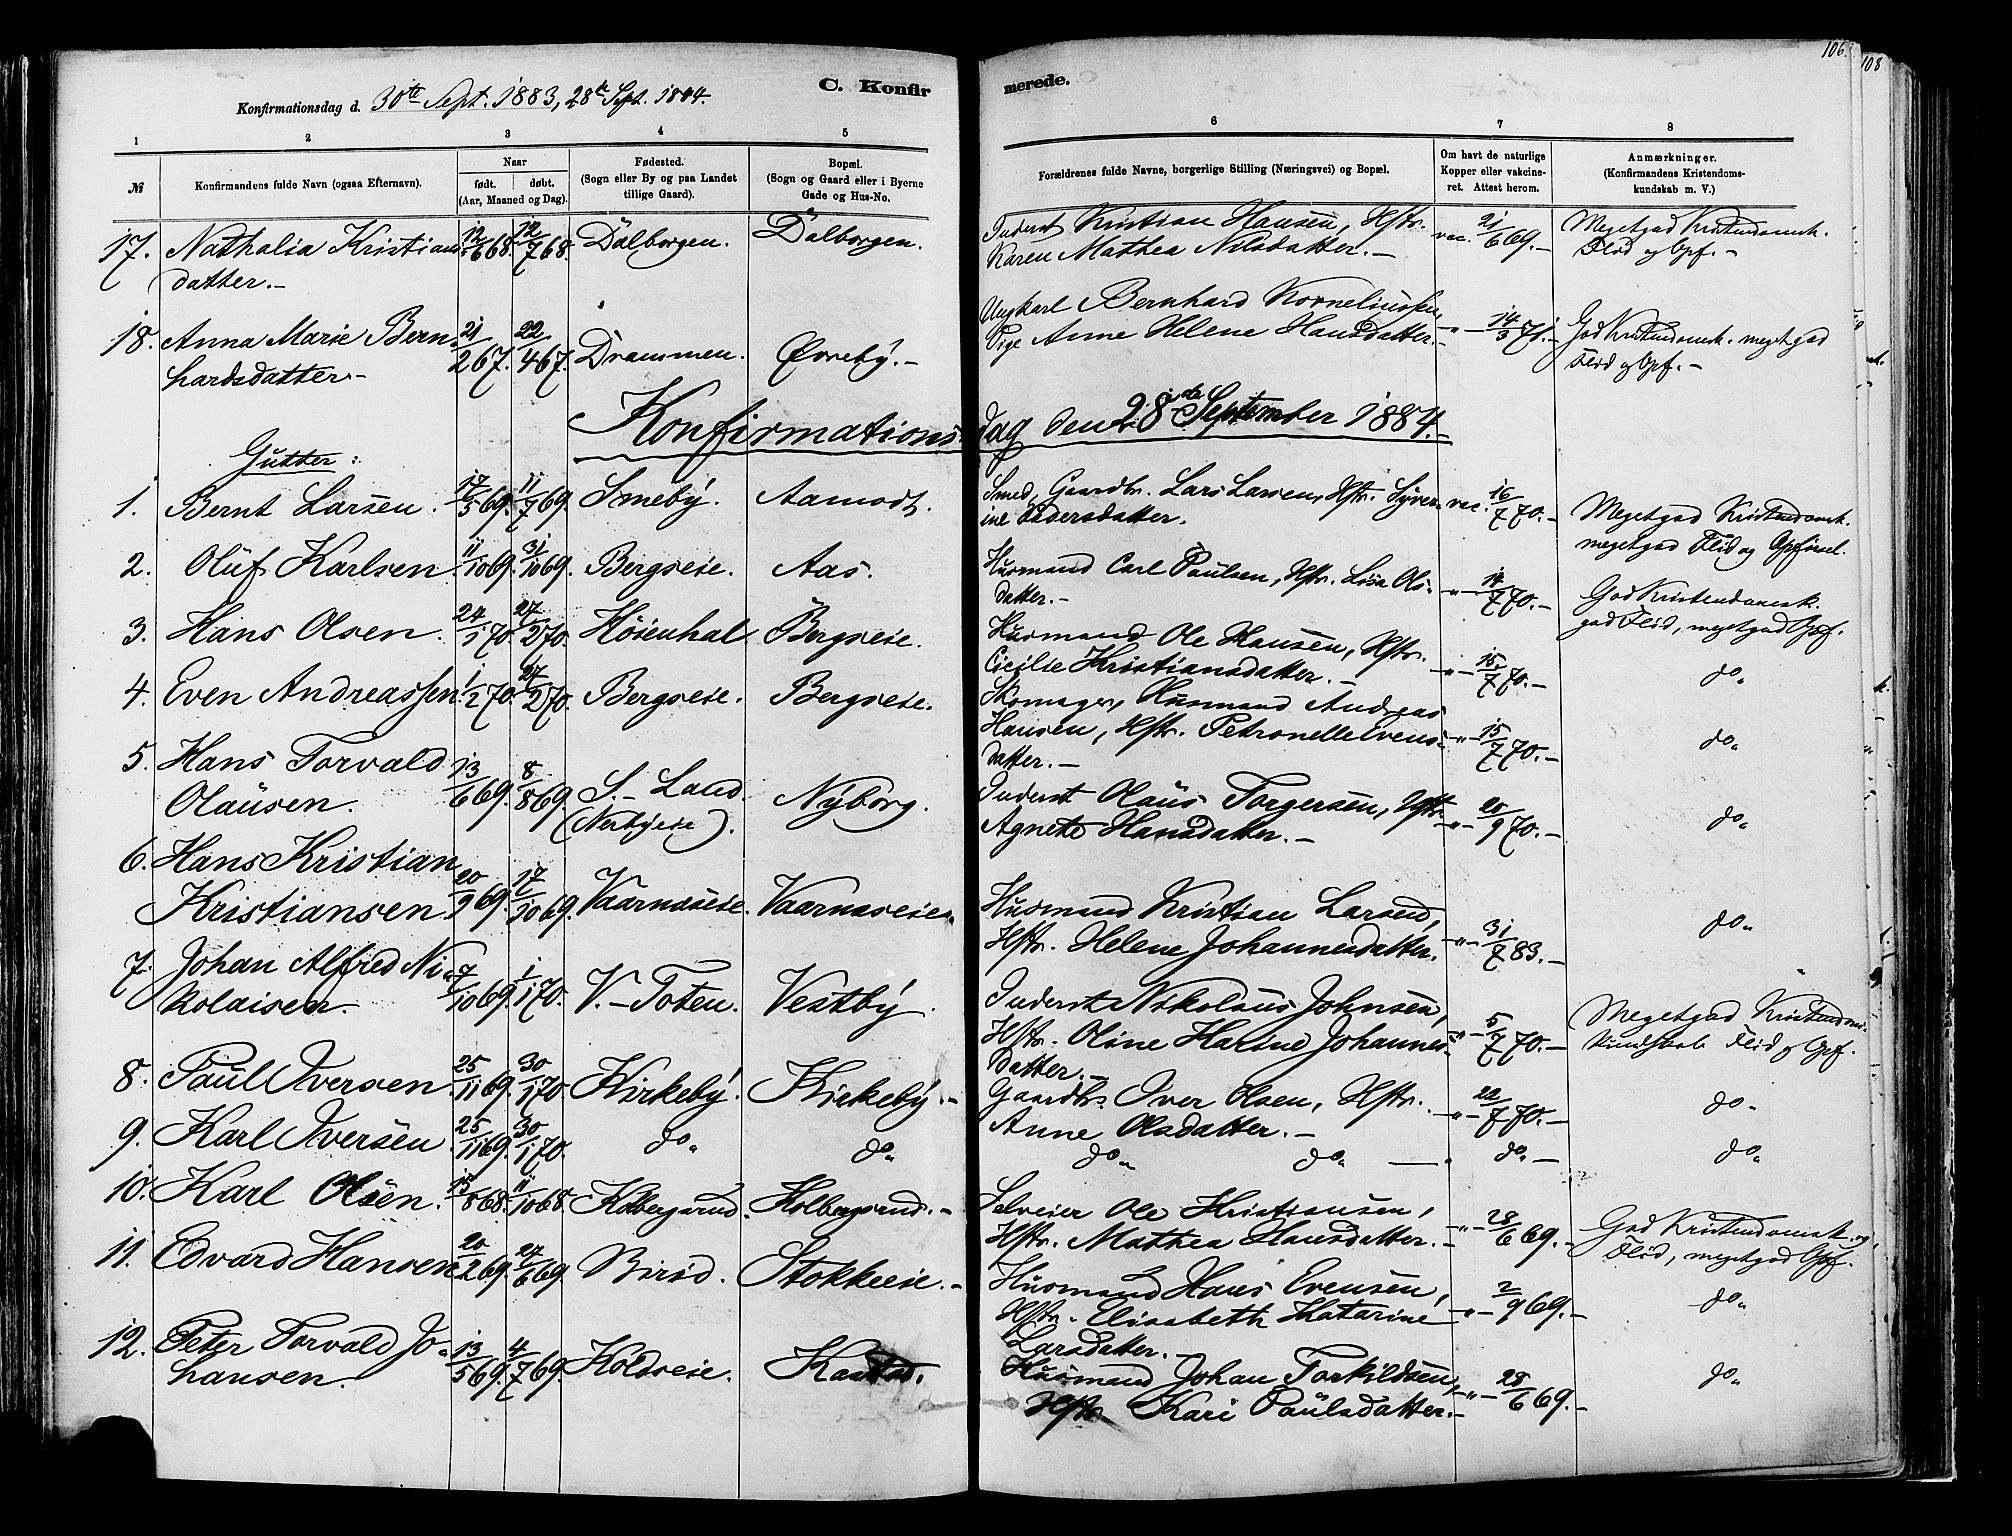 106.
108
Konfirmationsdag d. 30te Sept. 1883, 28de Sept. 1884.
C. Konfirmerede.
1 2 3 4 5 6 7 8
№
Konfirmandens fulde Navn (ogsaa Efternavn).
Naar
født. døbt.
(Aar, Maaned og Dag).
Fødested.
(Sogn eller By og paa Landet
tillige Gaard).
Bopæl.
(Sogn og Gaard eller i Byerne
Gade og Hus-No.
Forældrenes fulde Navne, borgerlige Stilling (Næringsvei) og Bopæl.
Om havt de naturlige
Kopper eller vakcine-
ret. Attest herom.
Anmærkninger.
(Konfirmandens Kristendoms-
kundskab m. V.)
17. Nathalia Kristians- 12/6 68. 12/7 68. Dalborgen. Dalborgen. Inderst Kristian Hansen, Hstr. vac. 21/6 69.- Megetgod Kristendomsk.
datter.- Karen Mathea Nilsdatter.- Flid og Opf.-
18. Anna Marie Bern- 21/2 67. 22/4 67. Drammen. Øvreby.- Ungkarl Bernhard Korneliussen, -"- 14/3 71.- God Kristendomsk. meget god
hardsdatter- Pige Anne Helene Hansdatter.- Flid og Opf.-
Konfirmationsdag den 28de September 1884.-
Gutter:
1. Bernt Larsen. 17/5 69. 11/7 69. Smeby. Aamodt. Smed, Gaardbr. Lars Larsen, Hstr. Syver- vac. 16/7 70.- Megetgod Kristendomsk.
ine Pedersdatter. megetgod Flid og Opførsel.
2. Oluf Karlsen. 11/10 69. 31/10 69. Bergseie. Aas. Husmand Carl Paulsen, Hstr. Lisa Ols- -"- 14/7 70.- God Kristendomsk.
datter.- god Flid, megetgod Opf.
3. Hans Olsen. 24/1 70. 27/2 70. Høsenhal. Bergseie. Husmand Ole Hansen, Hstr.
Cicilie Kristiansdatter.- -"- 15/7 70.- do"
4. Even Andreassen. 1/2 70. 27/2 70. Bergseie. Bergseie. Skomager, Husmand Andreas
Hansen, Hstr. Petronelle Evens- -"- 15/7 70.- do"
datter.-
5. Hans Torvald 13/6 69. 8/8 69. S. Land. Nyborg. Inderst Olaus Torgersen, Hstr. -"- 20/9 70.- do"
Olausen. (Nerbyeie). Agnete Hansdatter.-
6. Hans Kristian
Kristiansen. 20/9 69. 17/10 69. Vaarnaseie. Vaarnaseie. Husmand Kristian Larsen,
Hstr. Helene Johannesdatter. -"- 31/7 83.- do"
7. Johan Alfred Ni- 7/10 69. 1/1 70. V.-Toten. Vestby. Inderst Nikolaus Johnsen, Megetgod Kristendoms-
kolaisen. Hstr. Oline Harine Johannes- -"- 5/7 70.- kundskab Flid og Opf.
datter.-
8. Paul Iversen. 25/11 69. 30/1 70. Kirkeby. Kirkeby.- Gaardbr. Iver Olsen, Hstr. -"- 22/7 70.- do"
Anne Olsdatter.-
9. Karl Iversen 25/11 69. 30/1 70. do" do" do" do" do"- do"
10. Karl Olsen. 15/8 68. 11/10 68. Kolbergsrud. Kolbergsrud.- Selveier Ole Kristiansen, -"- 28/6 69.- God Kristendomsk. og
Hstr. Mathea Hansdatter.- Flid, megetgod Opf.
11. Edvard Hansen 20/2 69. 27/6 69. Birid. Stokkeeie.- Husmand Hans Evensen,
Hstr. Elisabeth Katarine -"- 2/9 69.- do"
Larsdatter.-
12. Peter Torvald Jo- 13/5 69. 4/7 69. Koldseie. Husmand Johan Torkildsen, -"- 28/6 69.- do"
hansen. Hstr. Kari Paulsdatter.-